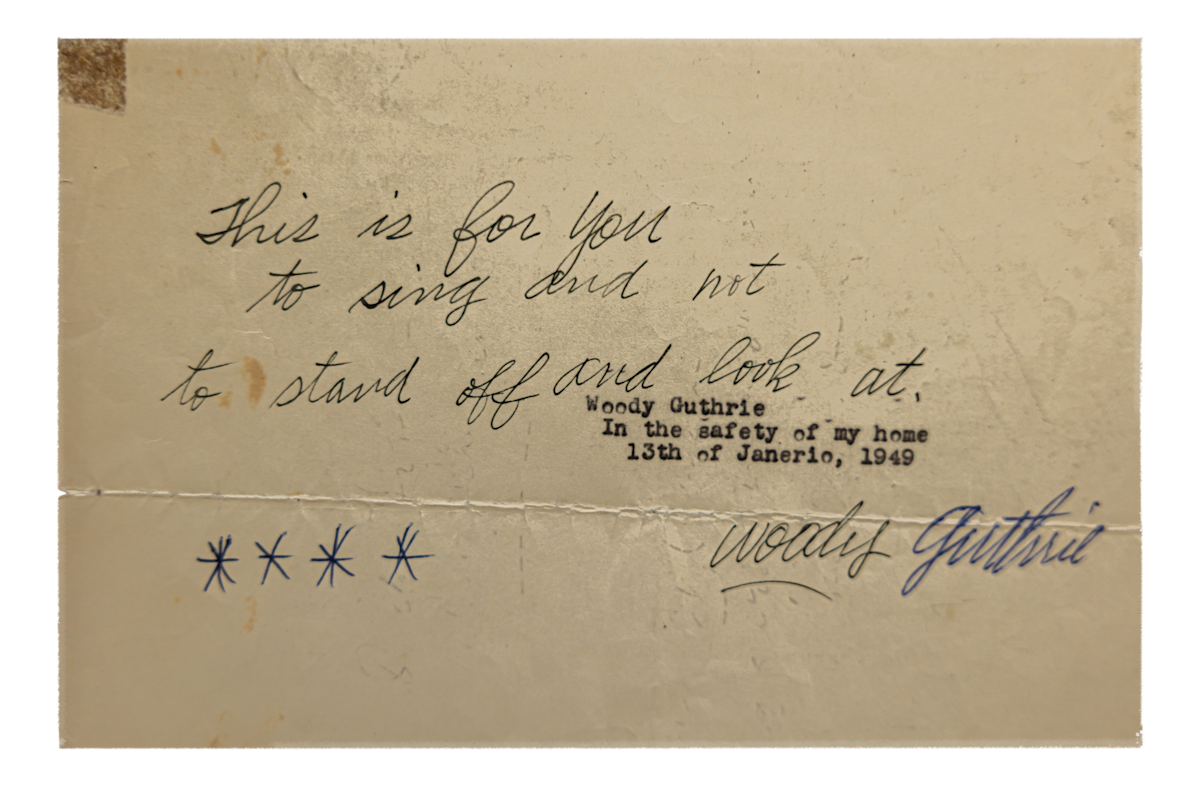 This is for You
to sing and not
to stand off and look at.
Woody Guthrie
In the safety of my home
13th of Janerio, 1949
**** Woody Guthrie